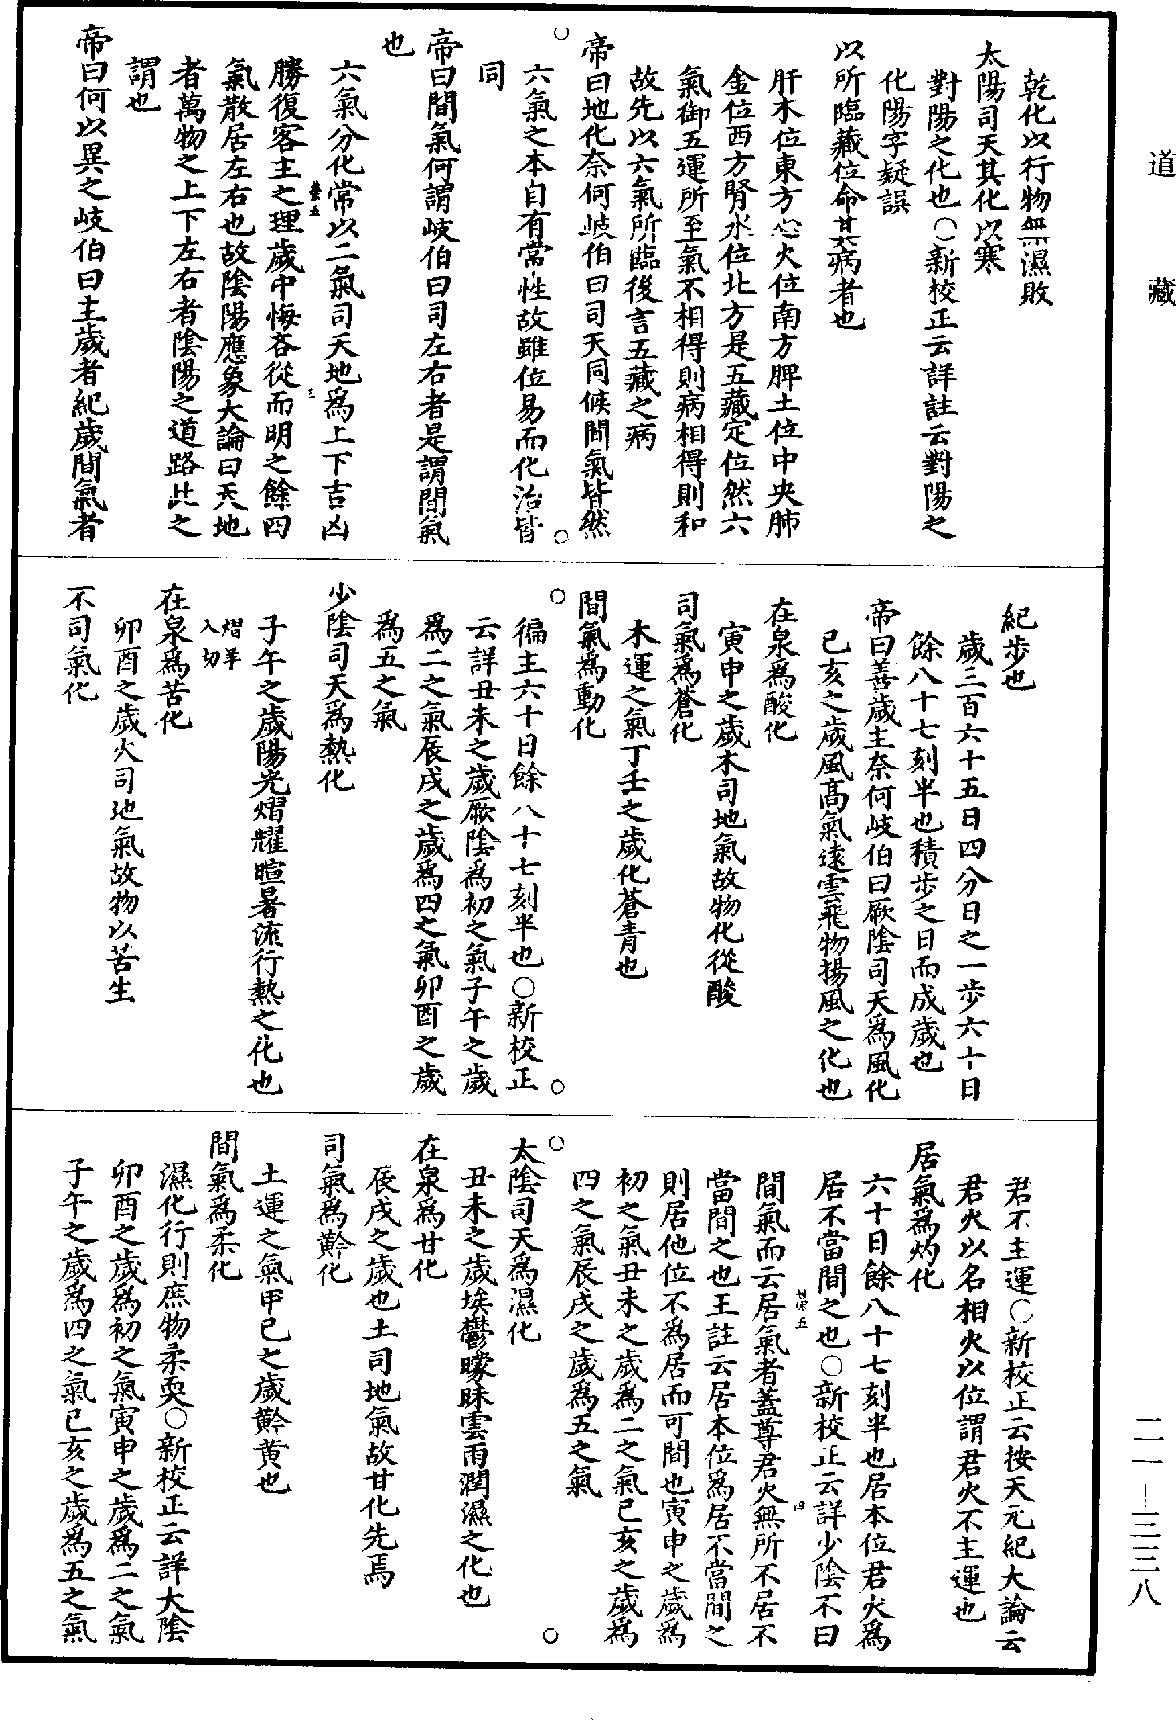 道藏
二一—三三八
乾化以行物無濕敗
太陽司天其化以寒
對陽之化也○新校正云詳註云對陽之
化陽字疑誤
以所臨藏位命其病者也
肝木位東方心火位南方脾土位中央肺
金位西方腎水位北方是五藏定位然六
氣御五運所至氣不相得則病相得則和
故先以六氣所臨後言五藏之病
帝曰地化奈何岐伯曰司天同候間氣皆然
六氣之本自有常性故雖位易而化治皆
同
帝曰間氣何謂岐伯曰司左右者是謂間氣
也
六氣分化常以二氣司天地爲上下吉凶
勝復客主之理歲中悔吝從而明之餘四
氣散居左右也故陰陽應象大論曰天地
者萬物之上下左右者陰陽之道路此之
謂也
帝曰何以異之岐伯曰主歲者紀歲間氣者
紀步也
歲三百六十五日四分日之一步六十日
餘八十七刻半也積步之日而成歲也
帝曰善歲主奈何岐伯曰厥陰司天爲風化
巳亥之歲風高氣遠雲飛物揚風之化也
在泉爲酸化
寅申之歲木司地氣故物化從酸
司氣爲蒼化
木運之氣丁壬之歲化蒼青也
間氣爲動化
徧主六十日餘八十七刻半也○新校正
云詳丑未之歲厥陰爲初之氣子午之歲
爲二之氣辰戌之歲爲四之氣卯酉之歲
爲五之氣
少陰司天爲熱化
子午之歲陽光熠耀暄暑流行熱之化也
熠羊
入切
在泉爲苦化
卯酉之歲火司地氣故物以苦生
不司氣化
君不主運○新校正云按天元紀大論云
君火以名相火以位謂君火不主運也
居氣爲灼化
六十日餘八十七刻半也居本位君火爲
居不當間之也○新校正云詳少陰不曰
間氣而云居氣者蓋尊君火無所不居不
當間之也王註云居本位爲居不當間之
則居他位不爲居而可間也寅申之歲爲
初之氣丑未之歲爲二之氣巳亥之歲爲
四之氣辰戌之歲爲五之氣
太陰司天爲濕化
丑未之歲埃鬱曚昧雲雨潤濕之化也
在泉爲甘化
辰戌之歲也土司地氣故甘化先焉
司氣爲黅化
土運之氣甲己之歲黅黄也
間氣爲柔化
濕化行則庶物柔耎○新校正云詳太陰
卯酉之歲爲初之氣寅申之歲爲二之氣
子午之歲爲四之氣巳亥之歲爲五之氣